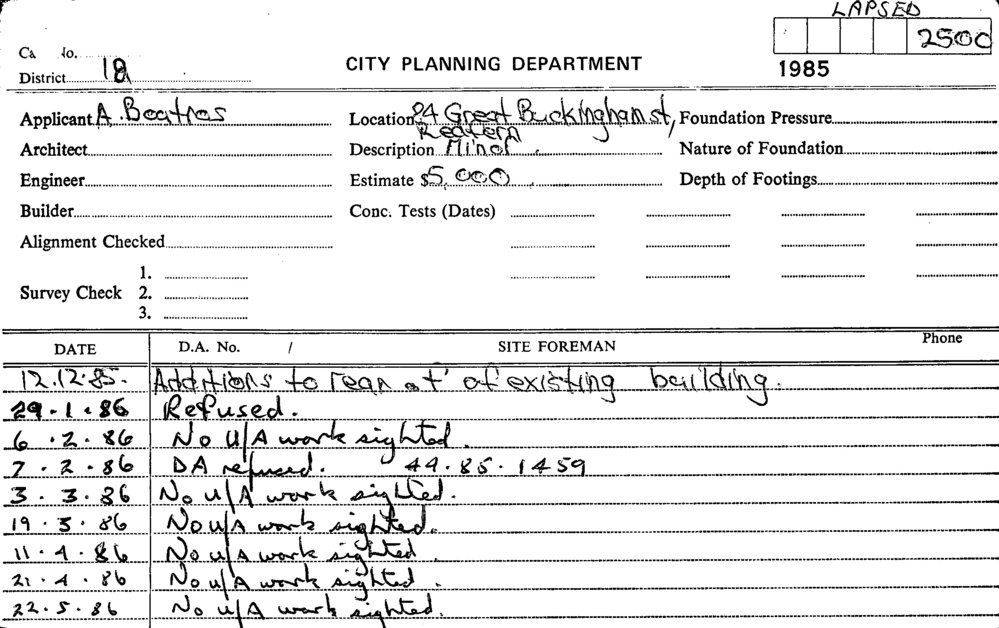 LAPSED
2500
Ca No.
District 1
CITY PLANNING DEPARTMENT
1985
Applicant A. Beatros
Location 24 Great Buckingham st,
Redfern
Foundation Pressure
Architect
Description Minor.
Nature of Foundation
Engineer
Estimate $5,000
Depth of Footings
Builder
Conc. Tests (Dates)
Alignment Checked
Survey Check
1.
2.
3.
DATE D.A. No. / SITE FOREMAN Phone
12.12.85. Additions to rear of existing building.
29.1.86 Refused.
6.2.86 No U/A work sighted.
7.2.86 DA refused. 44.85.1459
3.3.86 No u/A work sighted.
19.3.86 No u/A work sighted.
11.4.86 No u/A work sighted
21.4.86 No u/A work sighted.
22.5.86 No u/A work sighted.